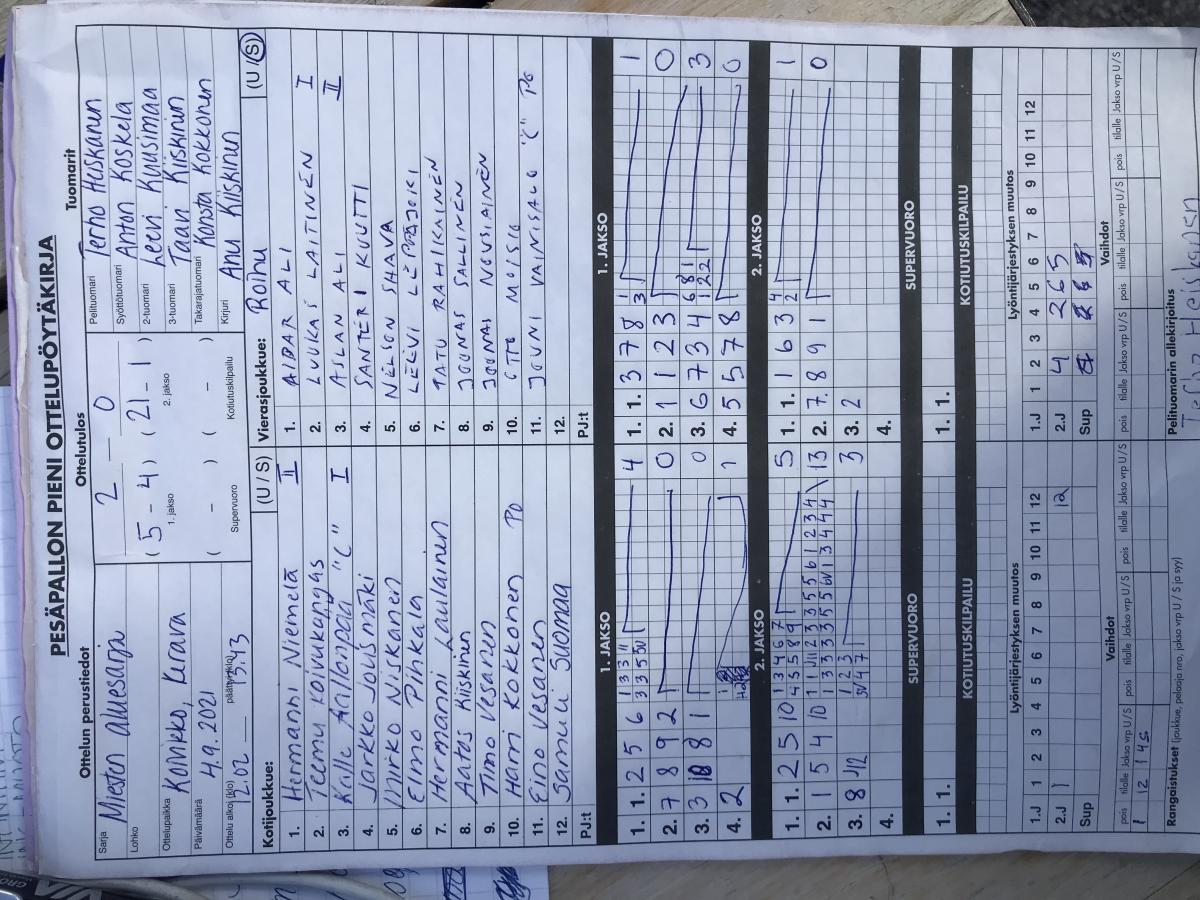 PESÄPALLON PIENI OTTELUPÖYTÄKIRJA
Ottelun perustiedot
Ottelutulos
Tuomarit
Sarja Miesten aluesarja
Lohko
Ottelupaikka Koivikko, Kerava
Päivämäärä 4.9.2021
Ottelu alkoi (klo) 12.02 päättyi (klo) 13.43
2 - 0
( 5 - 4 ) ( 21 - 1 )
1. jakso 2. jakso
( - ) ( - )
Supervuoro Kotiutuskilpailu
Pelituomari Terho Heiskanen
Syöttötuomari Anton Koskela
2-tuomari Leevi Kuusimaa
3-tuomari Taavi Kiiskinen
Takarajatuomari Konsta Kokkonen
Kirjuri Anu Kiiskinen
Kotijoukkue: (U / S)
1. Hermanni Niemelä II
2. Teemu Koivukangas
3. Kalle Aallonpää "C" I
4. Jarkko Jousmäki
5. Mirko Niskanen
6. Elmo Pihkala
7. Hermanni Laulainen
8. Aatos Kiiskinen
9. Timo Vesanen
10. Harri Kokkonen PO
11. Eino Vesanen
12. Samuli Suomaa
PJ:t
Vierasjoukkue: Roihu (U / S)
1. AIDAR ALI
2. LUUKAS LAITINEN I
3. ASLAN ALI II
4. SANTERI KUUTTI
5. NELSON SHAVA
6. LEEVI LEPPÄJOKI
7. TATU RAHIKAINEN
8. JOONAS SALLINEN
9. JOONAS NOUSIAINEN
10. OTTO MOISIO
11. JOUNI VAINISALO "C" PO
12.
PJ:t
1. JAKSO
1. 1. 2 5 6 4
2. 7 8 9 2 0
3. 3 10 8 1 0
4. 2 1
1. JAKSO
1. 1. 3 7 8 1
2. 1 1 2 3 0
3. 6 7 3 4 3
4. 5 5 7 8 0
2. JAKSO
1. 1. 2 5 10 5
2. 1 5 4 10 13
3. 8 3
4.
2. JAKSO
1. 1. 1 6 3 1
2. 7. 8 9 1 0
3. 2
4.
SUPERVUORO
1. 1.
SUPERVUORO
1. 1.
KOTIUTUSKILPAILU
KOTIUTUSKILPAILU
Lyöntijärjestyksen muutos
1.J 1 2 3 4 5 6 7 8 9 10 11 12
2.J 1 12
Sup
Lyöntijärjestyksen muutos
1.J 1 2 3 4 5 6 7 8 9 10 11 12
2.J 4 2 6 5
Sup
Vaihdot
pois tilalle Jakso vrp U/S pois tilalle Jakso vrp U/S pois tilalle Jakso vrp U/S
1 12 1 4S
Vaihdot
pois tilalle Jakso vrp U/S pois tilalle Jakso vrp U/S pois tilalle Jakso vrp U/S
Rangaistukset (joukkue, pelaaja nro, jakso, vrp, U / S ja syy)
Pelituomarin allekirjoitus
Terho Heiskanen